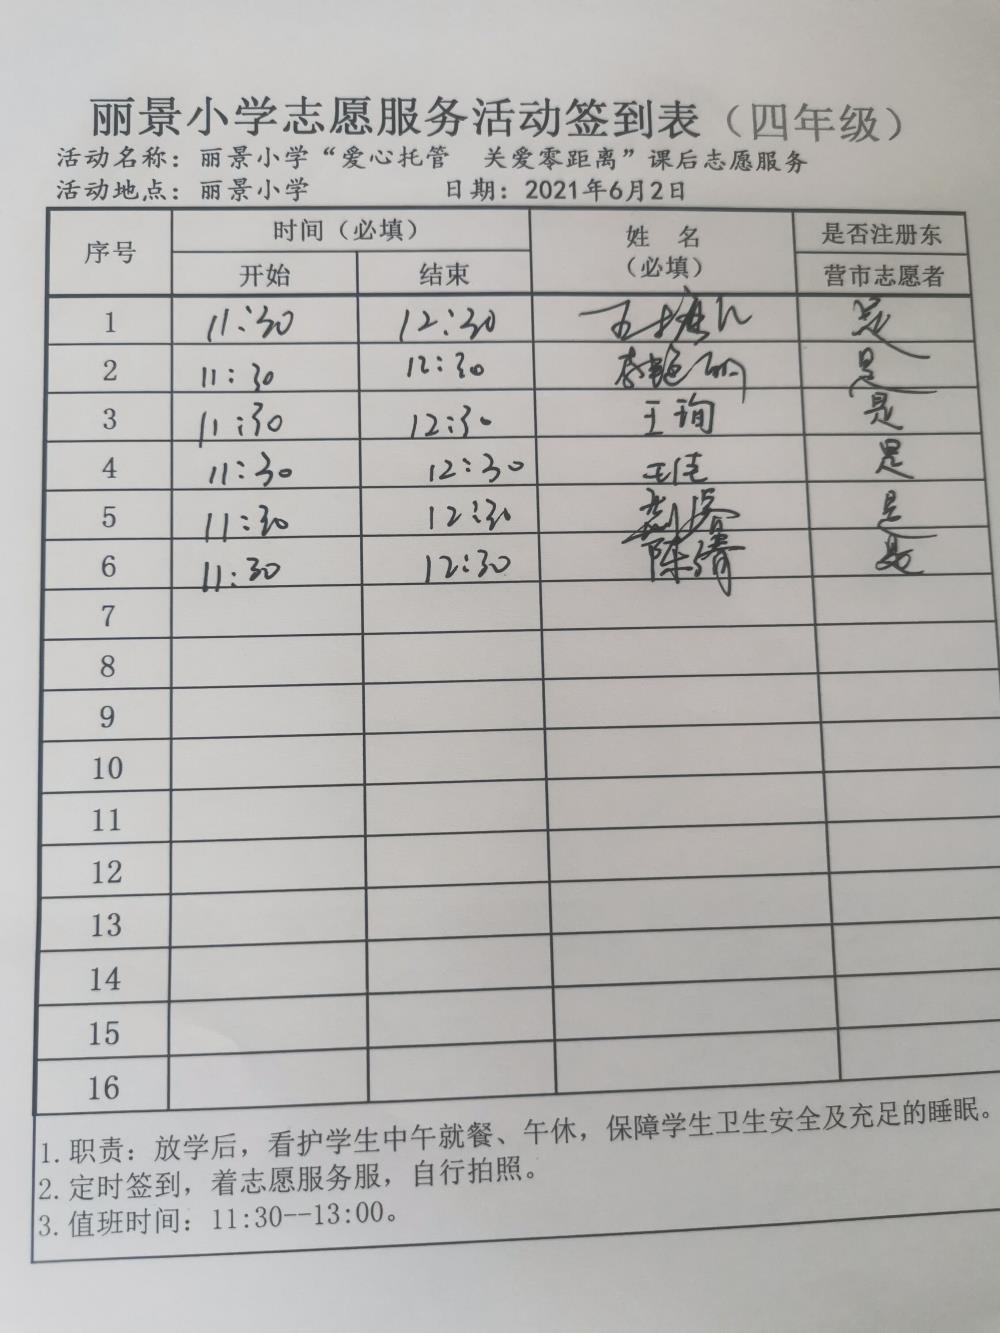 丽景小学志愿服务活动签到表（四年级）
活动名称：丽景小学“爱心托管　关爱零距离”课后志愿服务
活动地点：丽景小学　日期：2021年6月2日
序号 时间（必填） 姓 名（必填） 是否注册东营市志愿者
开始 结束
1 11:30 12:30 是
2 11:30 12:30 是
3 11:30 12:30 王珣 是
4 11:30 12:30 王佳 是
5 11:30 12:30 是
6 11:30 12:30 陈 是
7
8
9
10
11
12
13
14
15
16
1.职责：放学后，看护学生中午就餐、午休，保障学生卫生安全及充足的睡眠。
2.定时签到，着志愿服务服，自行拍照。
3.值班时间：11:30--13:00。